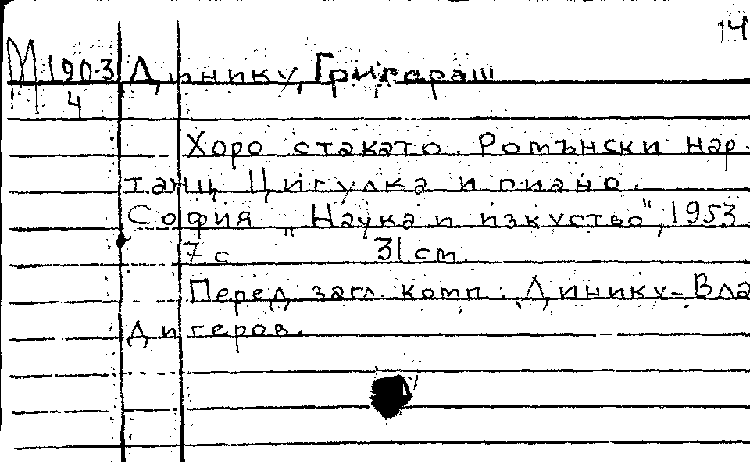 14
М 190-3 Динику, Григораш
4
Хоро стакато. Ромънски нар.
танц Цигулка и пиано.
София „Наука и изкуство", 1953
7 с 31 cm.
Перед загл. комп.: Динику-Вла
дигеров.